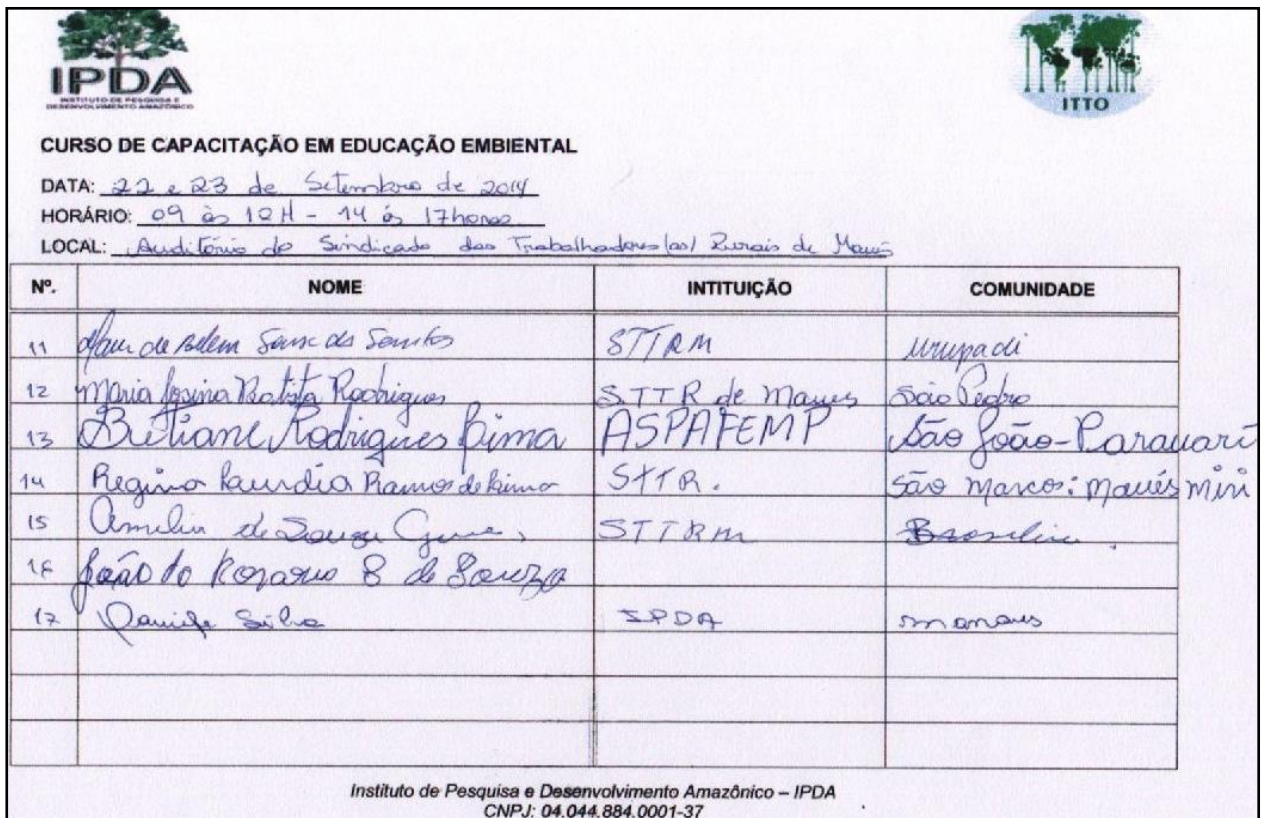 IPDA
INSTITUTO DE PESQUISA E
DESENVOLVIMENTO AMAZÔNICO
ITTO
CURSO DE CAPACITAÇÃO EM EDUCAÇÃO EMBIENTAL
DATA: 22 e 23 de Setembro de 2014
HORÁRIO: 09 às 12H - 14 às 17horas
LOCAL: Auditório do Sindicado dos Trabalhadores (as) Rurais de Maués
Nº. NOME INTITUIÇÃO COMUNIDADE
11 de Belem dos Santos STTRM Urupadi
12 Maria Josina Batista Rodrigues STTR de Maues São Pedro
13 Rodrigues Lima ASPAFEMP São João-Parauari
14 Regina Ramos de Lima STTR. São Marcos: Maués Miri
15 de Souza STTRM
16 João do Rosario B de Souza
17 Silva IPDA manaus
Instituto de Pesquisa e Desenvolvimento Amazônico – IPDA
CNPJ: 04.044.884.0001-37